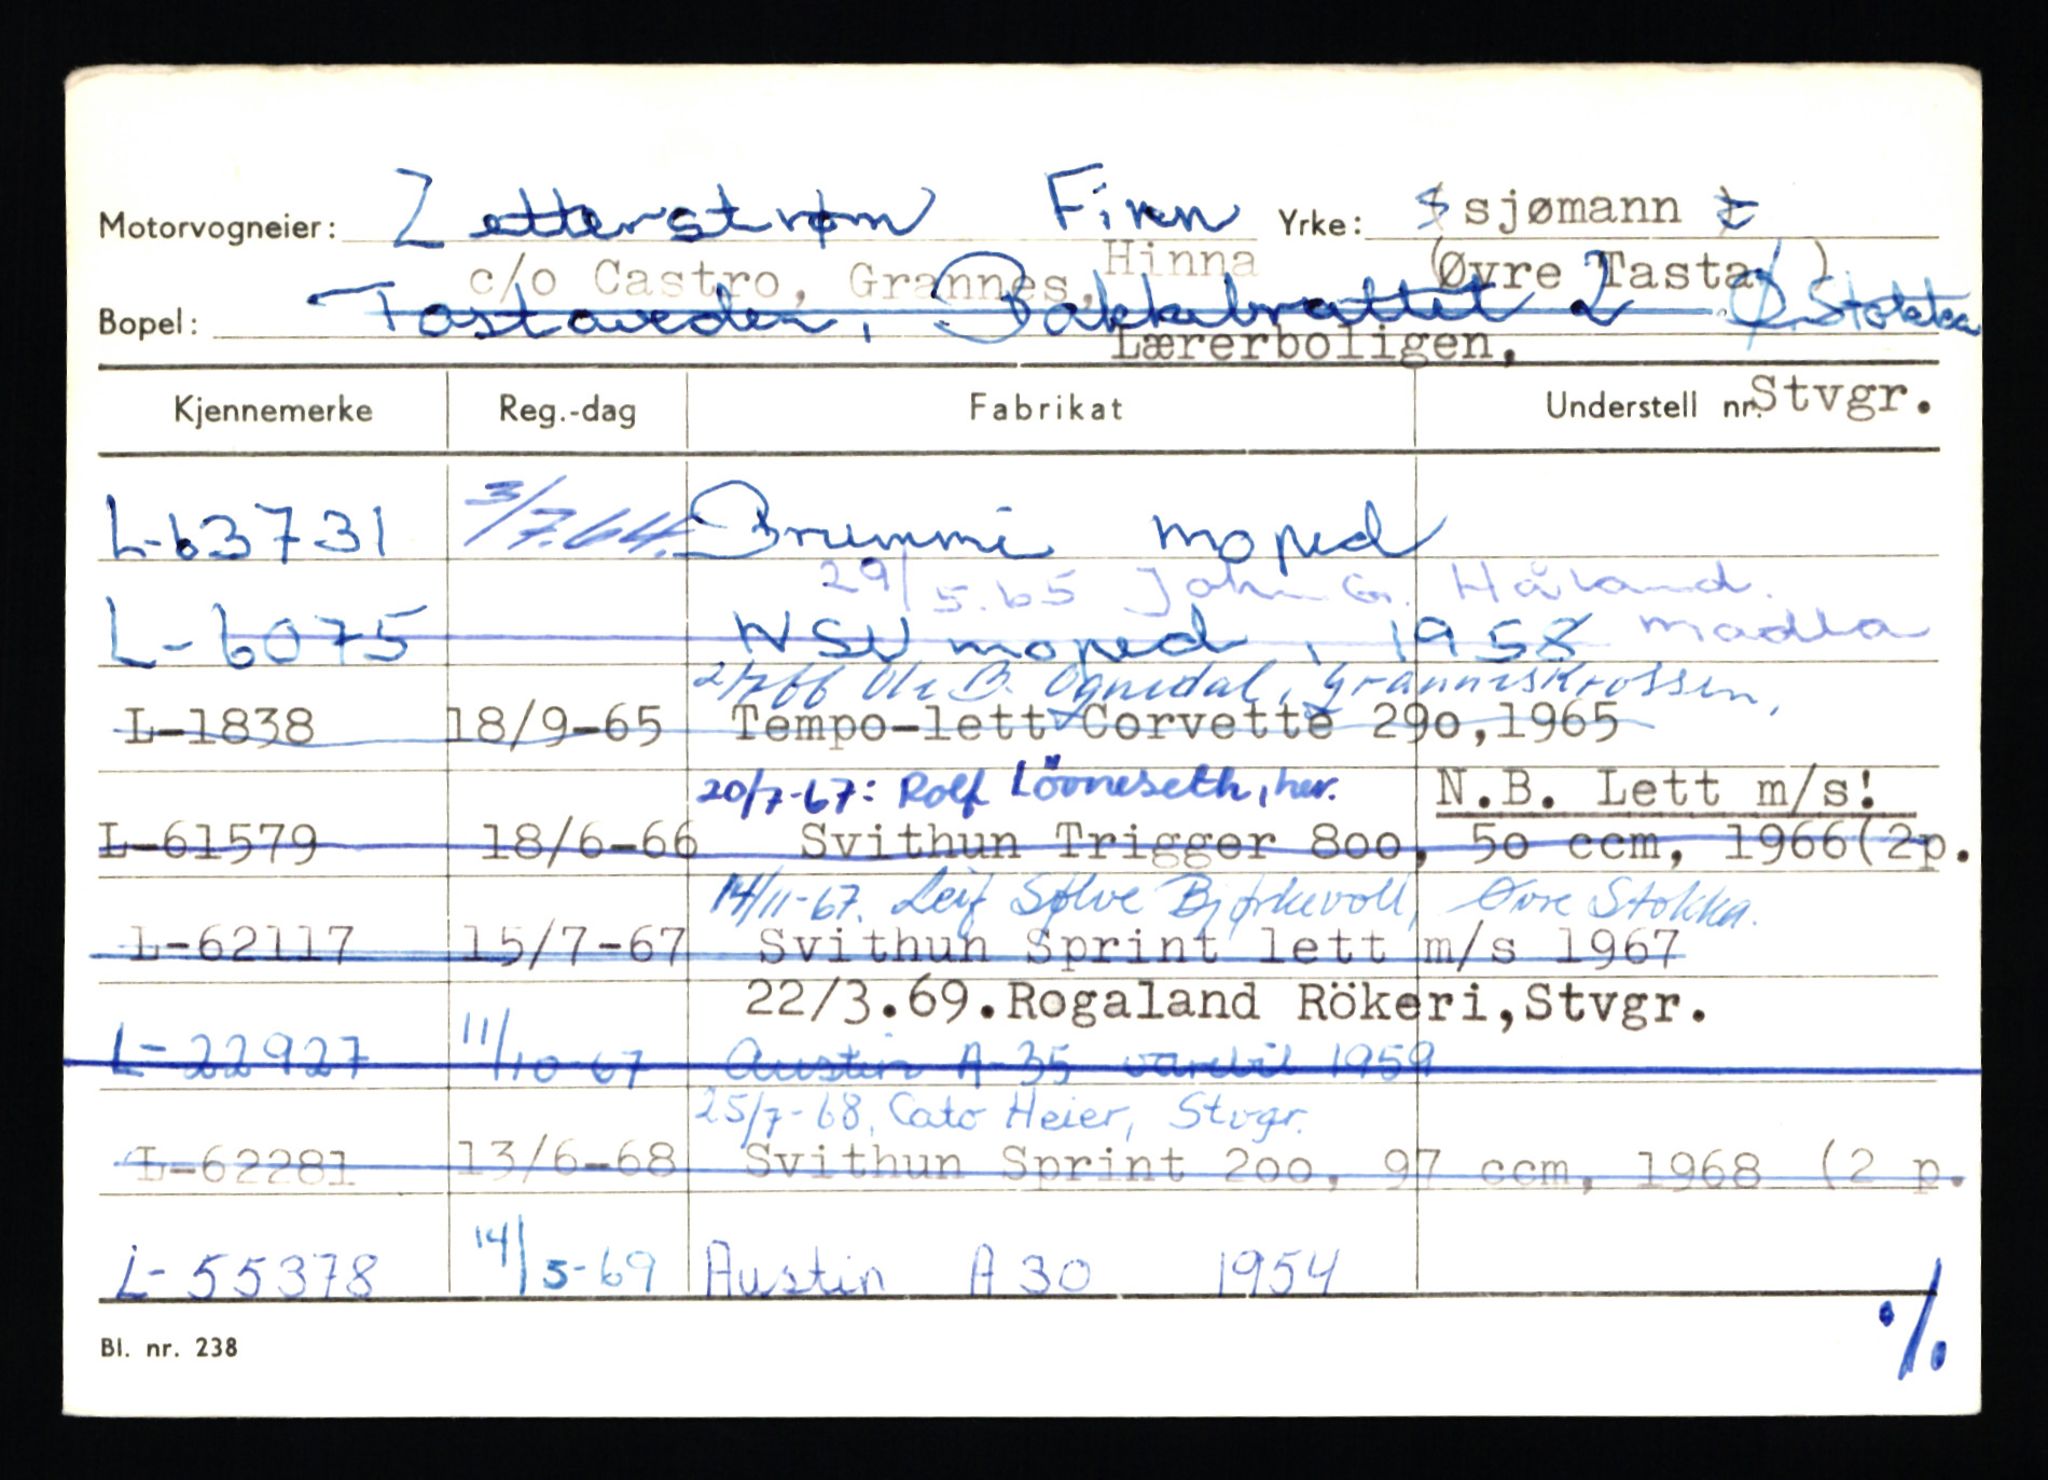 Motorvogneier: Zetterstrøm Finn Yrke: sjømann
c/o Castro, Grannes, Hinna (Øvre Tasta)
Bopel: Tastaveden, Bakkebrattet 2 Ø. Stokka
Lærerboligen,
Stvgr.
Kjennemerke Reg.-dag Fabrikat Understell nr.
L-63731 3/7.64. Brummi moped
29/5.65 John G. Håland. Madla
L-6075 NSU moped, 1958
2/7 66 Ole B. Ognedal, Granneskrossen,
L-1838 18/9-65 Tempo-lett Corvette 290,1965
20/7-67: Rolf Lövneseth, her. N.B. Lett m/s!
L-61579 18/6-66 Svithun Trigger 800, 50 ccm, 1966(2p.
14/11-67. Leif Sølve Bjørkevoll, Øvre Stokka.
L-62117 15/7-67 Svithun Sprint lett m/s 1967
22/3.69.Rogaland Rökeri,Stvgr.
L-22927 11/10-67 Austin A-35 varebil 1959
25/7-68, Cato Heier, Stvgr.
L-62281 13/6-68 Svithun Sprint 200, 97 ccm, 1968 (2 p.
L-55378 14/5-69 Austin A 30 1954
Bl. nr. 238 ./.